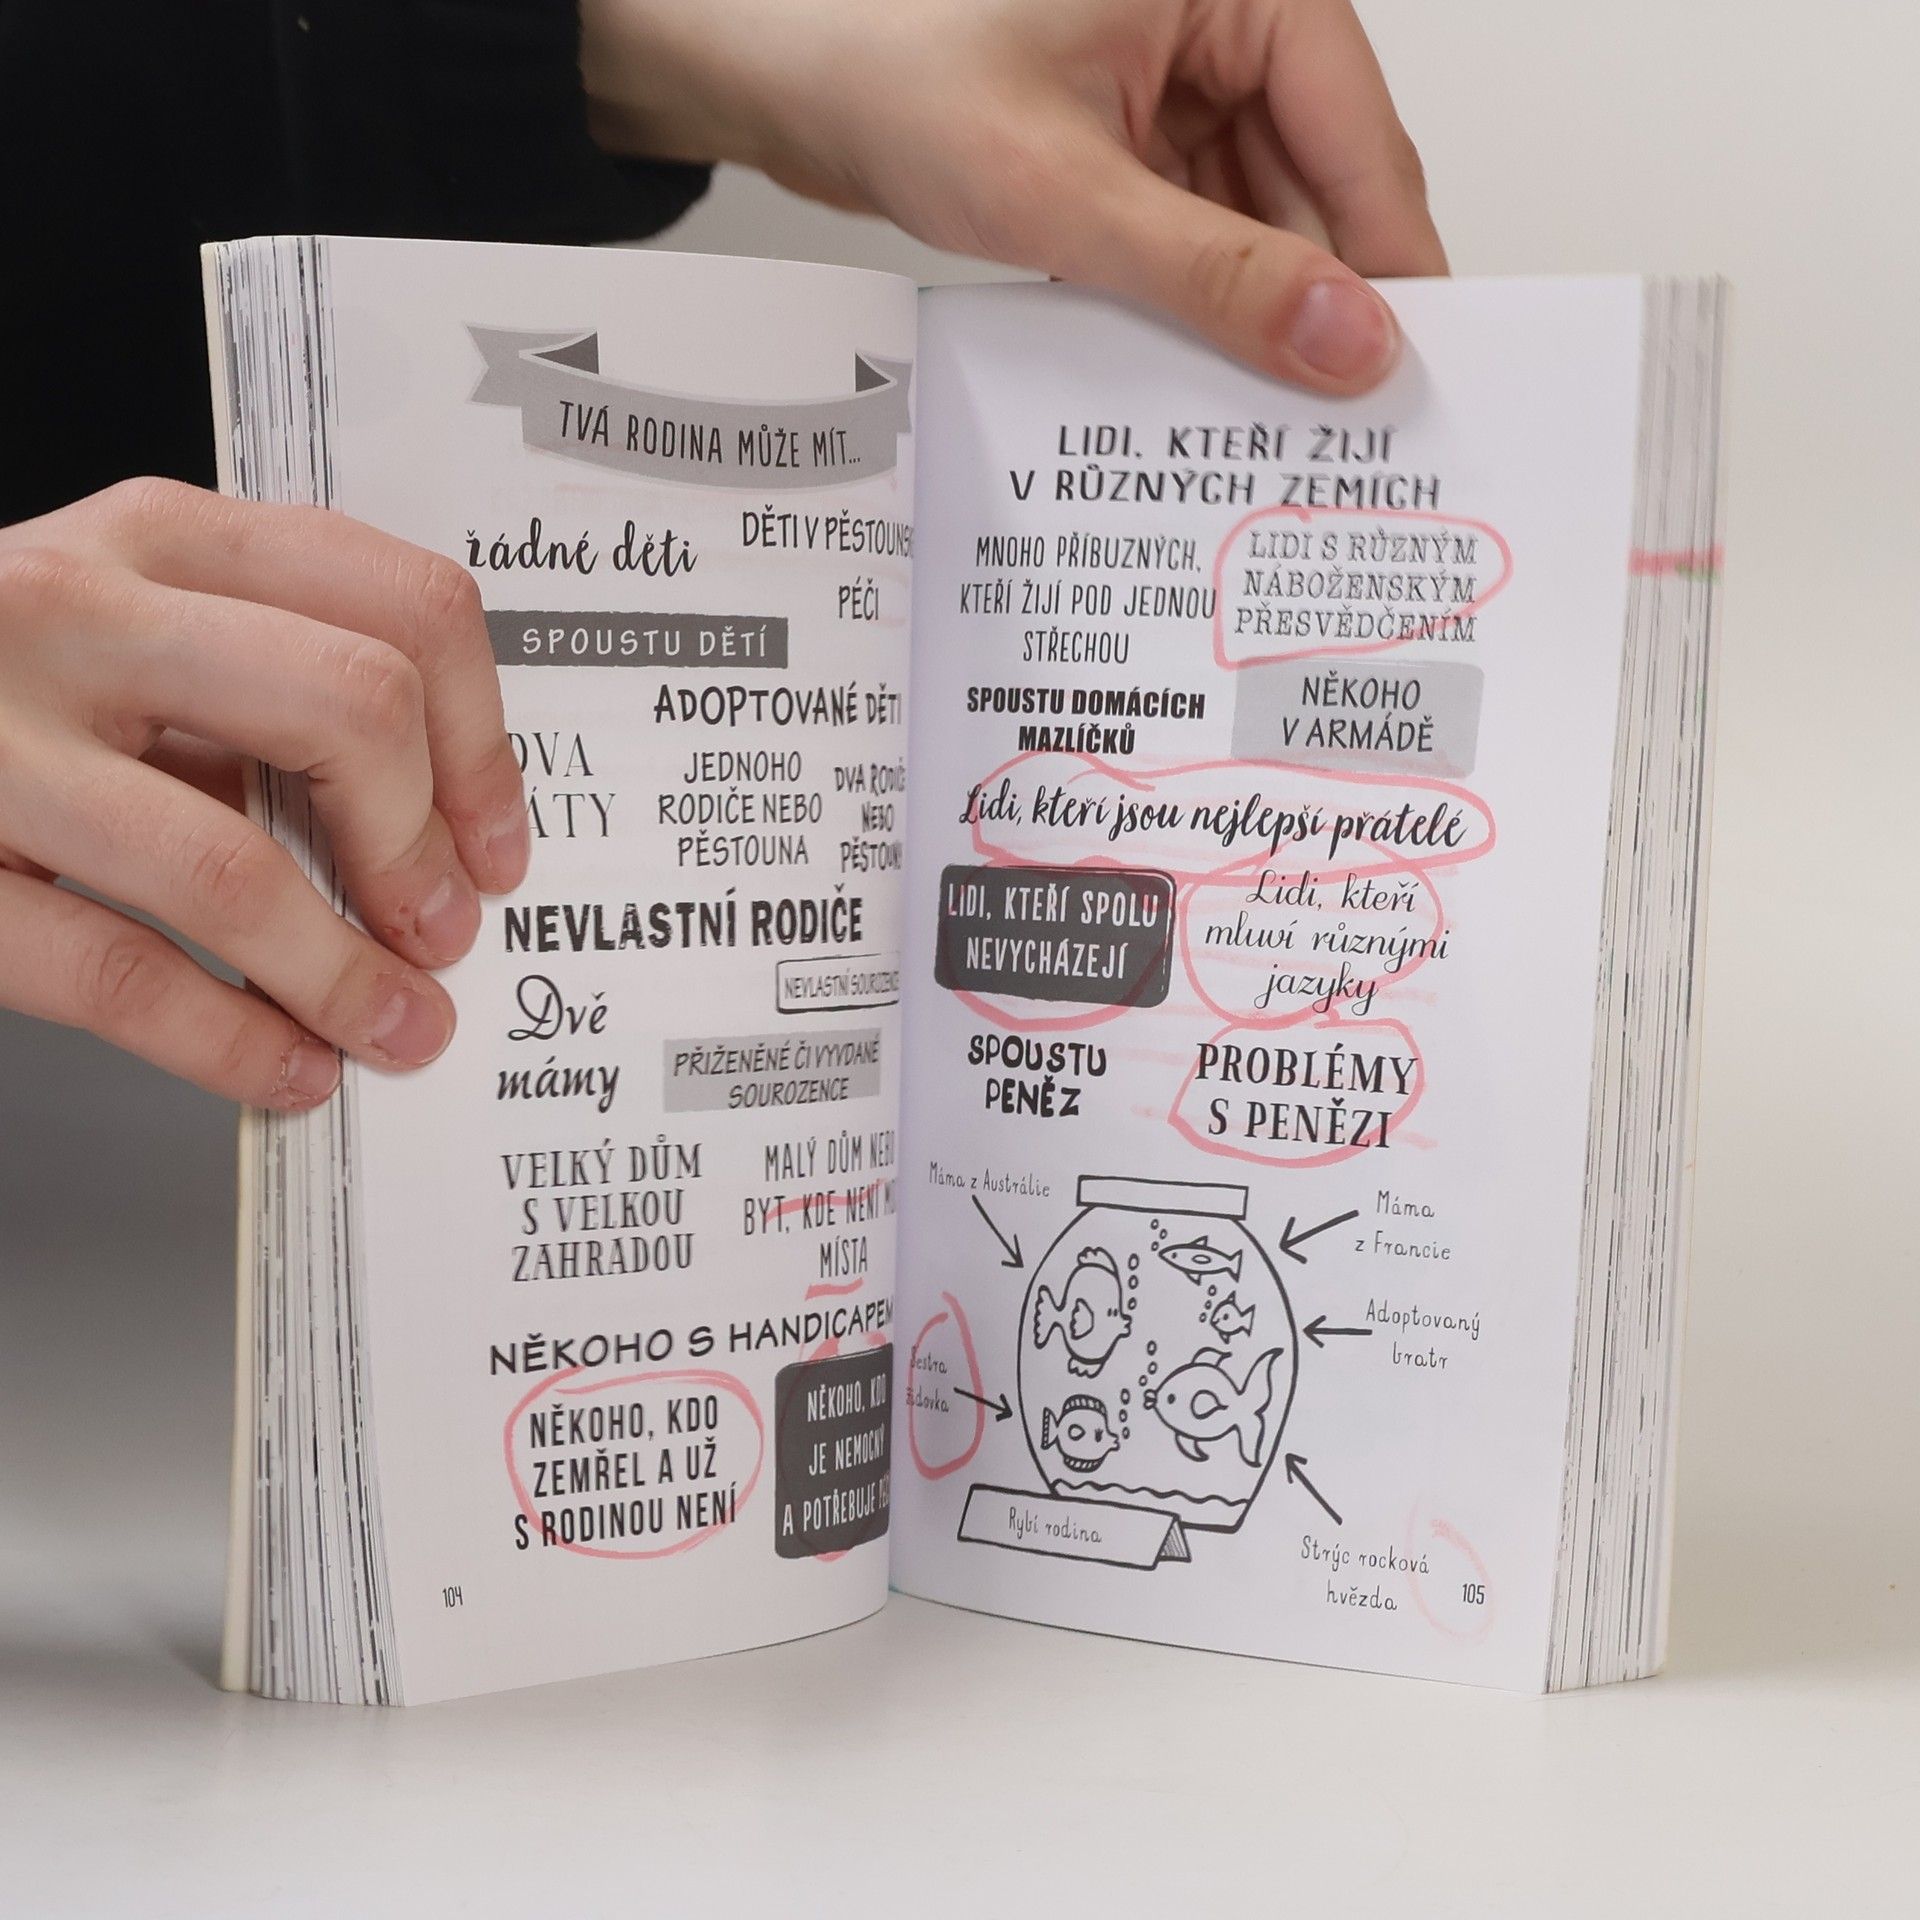 TVÁ RODINA MŮŽE MÍT...
žádné děti
DĚTI V
PÉČI
SPOUSTU DĚTÍ
ADOPTOVANÉ DĚTI
JEDNOHO
RODIČE NEBO
PĚSTOUNA
DVA
NEBO
NEVLASTNÍ RODIČE
Dvě
mámy
NEVLASTNÍ SOUROZENCE
PŘIŽENĚNÉ ČI VYVDANÉ
SOUROZENCE
VELKÝ DŮM
S VELKOU
ZAHRADOU
MALÝ DŮM NEBO
BYT, KDE NENÍ
MÍSTA
NĚKOHO S
NĚKOHO, KDO
ZEMŘEL A UŽ
S RODINOU NENÍ
NĚKOHO, KDO
JE NEMOCNÝ
A POTŘEBUJE
104
LIDI, KTEŘÍ ŽIJÍ
V RŮZNÝCH ZEMÍCH
MNOHO PŘÍBUZNÝCH,
KTEŘÍ ŽIJÍ POD JEDNOU
STŘECHOU
LIDI S RŮZNÝM
NÁBOŽENSKÝM
PŘESVĚDČENÍM
SPOUSTU DOMÁCÍCH
MAZLÍČKŮ
NĚKOHO
V ARMÁDĚ
Lidi, kteří jsou nejlepší přátelé
LIDI, KTEŘÍ SPOLU
NEVYCHÁZEJÍ
Lidi, kteří
mluví různými
jazyky
SPOUSTU
PENĚZ
PROBLÉMY
S PENĚZI
Máma z Austrálie
Máma
z Francie
Adoptovaný
bratr
Sestra
židovka
Rybí rodina
Strýc rocková
hvězda
105